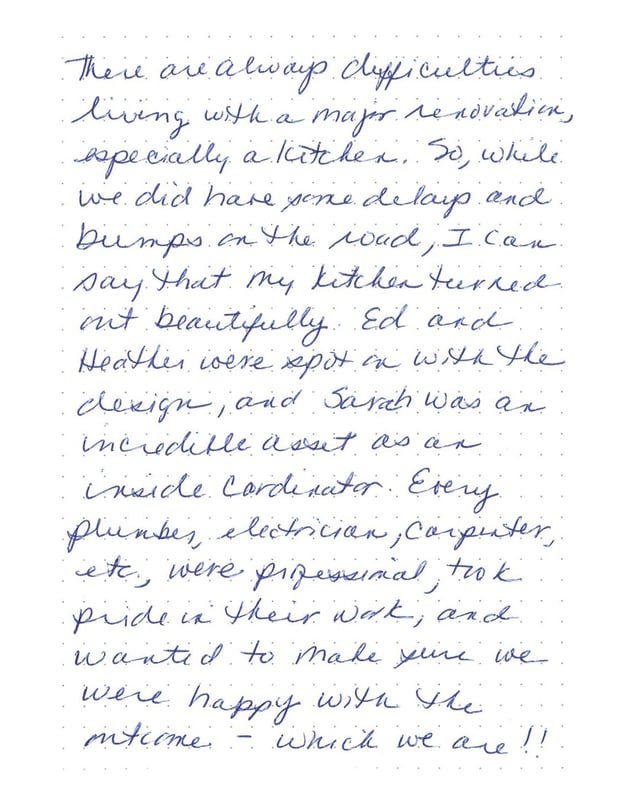 There are always difficulties
living with a major renovation,
especially a kitchen. So, while
we did have some delays and
bumps on the road, I can
say that my kitchen turned
out beautifully. Ed and
Heather were spot on with the
design, and Sarah was an
incredible asset as an
inside Cordinator. Every
plumber, electrician, carpenter,
etc., were professional, took
pride in their work, and
wanted to make sure we
were happy with the
outcome - which we are!!